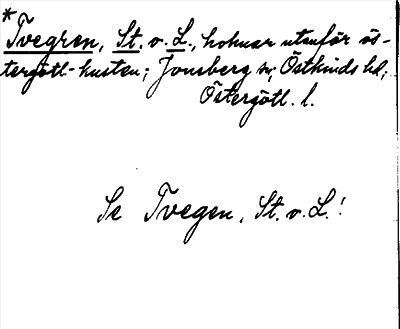 *
Tvegren, St. o. L., holmar utanför ös-
tergötl-kusten; Jonsberg sn, Östkinds hd,
Östergötl. l.
Se Tvegen, St. o. L.!